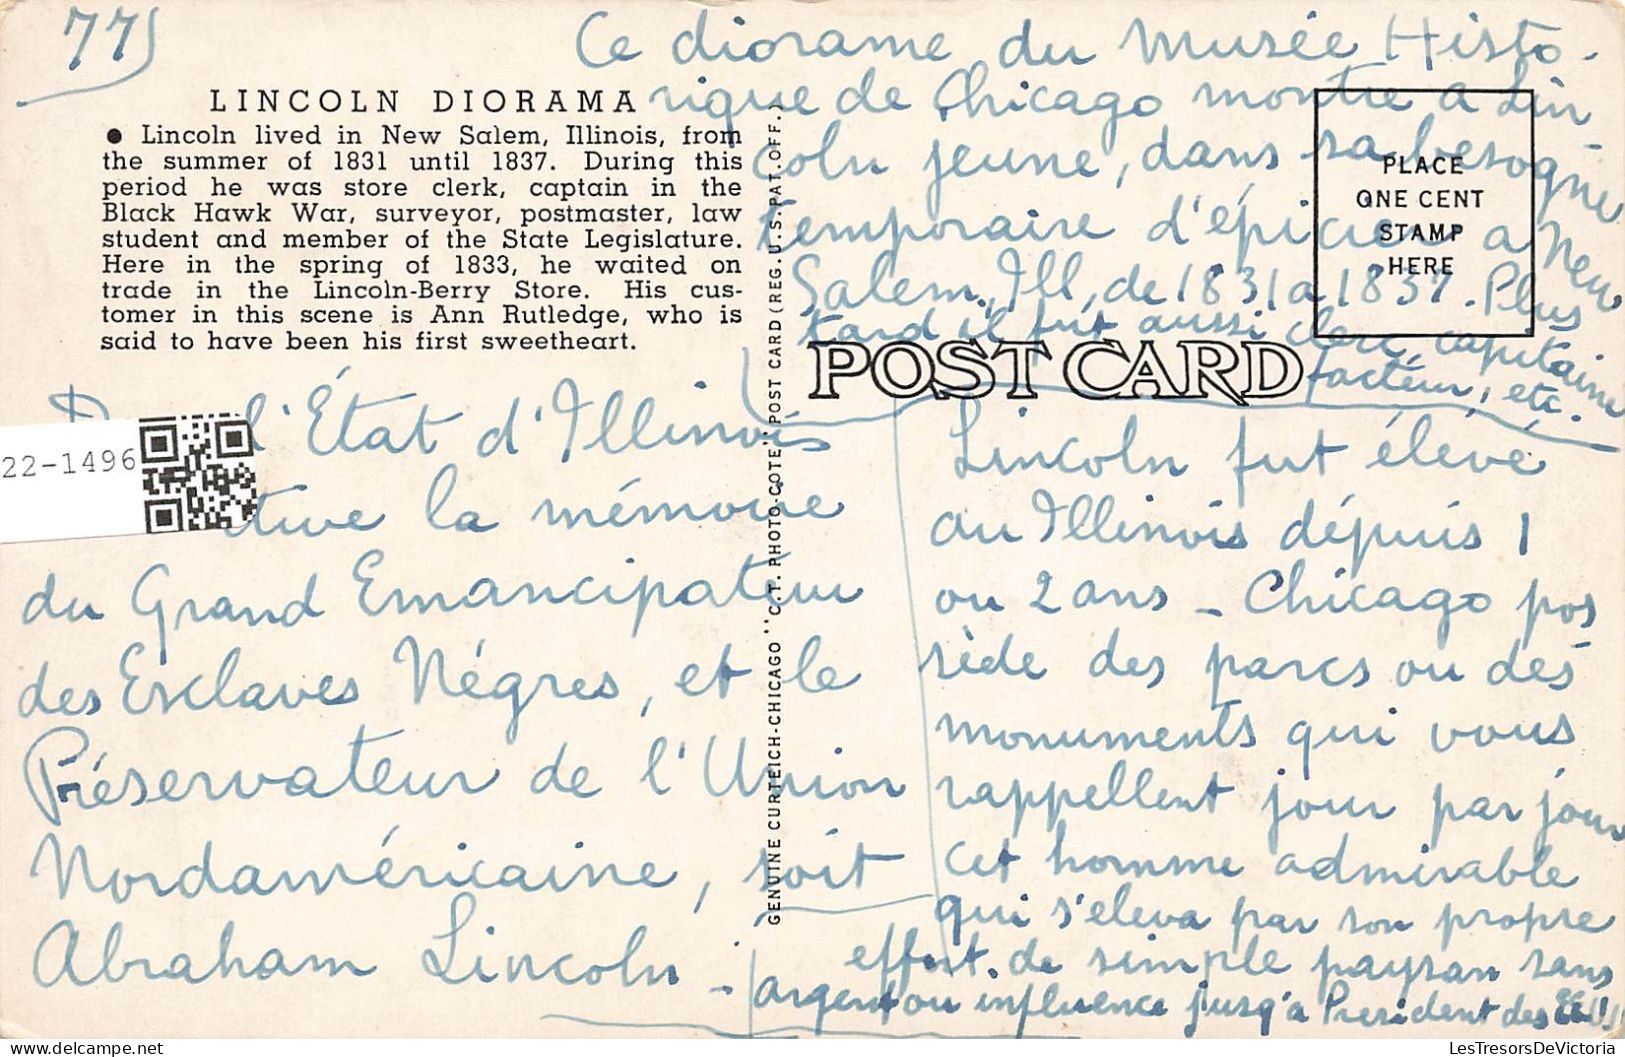 77)
Ce diorame du Musée Histo-
rique de Chicago montre a Lin
coln jeune, dans sa besogne
temporaire d'épicier a New
Salem, Ill, de 1831 a 1837. Plus
tard il fut aussi clerc, capitaine
facteur, etc.
LINCOLN DIORAMA
● Lincoln lived in New Salem, Illinois, from
the summer of 1831 until 1837. During this
period he was store clerk, captain in the
Black Hawk War, surveyor, postmaster, law
student and member of the State Legislature.
Here in the spring of 1833, he waited on
trade in the Lincoln-Berry Store. His cus-
tomer in this scene is Ann Rutledge, who is
said to have been his first sweetheart.
PLACE
ONE CENT
STAMP
HERE
POST CARD
GENUINE CURTEICH-CHICAGO "C.T. PHOTO-COTE" POST CARD (REG. U.S. PAT. OFF.)
22-1496
l'État d'Illinois
la mémoire
du Grand Emancipateur
des Esclaves Négres, et le
Préservateur de l'Union
Nordaméricaine, soit
Abraham Lincoln -
Lincoln fut élevé
au Illinois dépuis 1
ou 2 ans - Chicago pos
sède des parcs ou des
monuments qui vous
rappellent jour par jour
cet homme admirable
qui s'eleva par son propre
effort. de simple paysan sans
argent ou influence jusq'a President des EE.UU
LesTresorsDeVictoria
www.delcampe.net